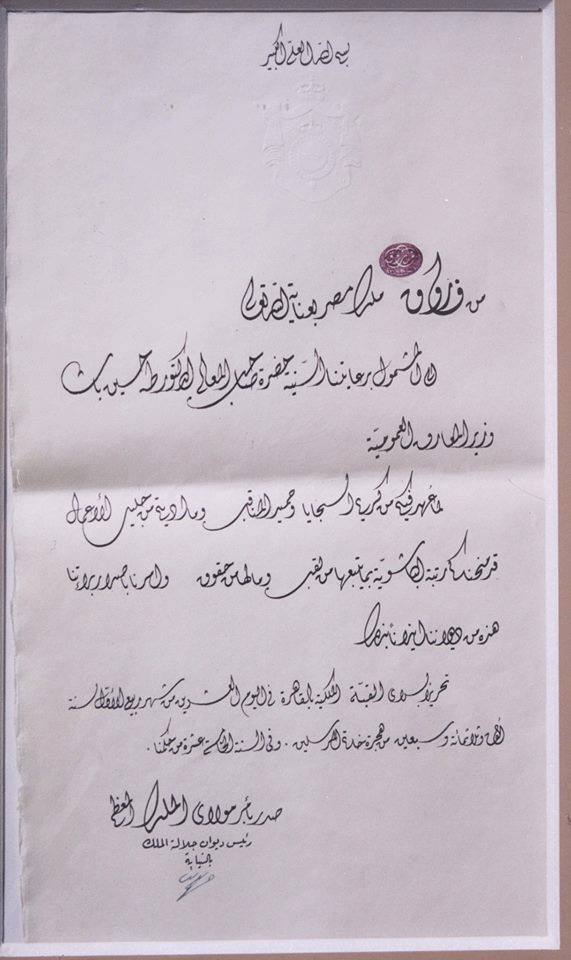 بسم الله العلي الكبير
فاروق
من فاروق ملك مصر بعناية الله تعالى
الى المشمول برعايتنا السنية حضرة صاحب المعالي الدكتور طه حسين باشا
وزير المعارف العمومية
لما عهد فيكم من كريم السجايا وحميد المناقب وما أديتم من جليل الأعمال
قد منحناكم رتبة الباشوية بما يتبعها من لقب وما لها من حقوق وامرنا باصدار براءتنا
هذه من ديواننا ايذانا بذلك
تحريرا بسراى القبة الملكية بالقاهرة فى اليوم العشرين من شهر ربيع الأول سنة
ألف وثلاثمائة وسبعين من هجرة خاتم المرسلين . وفى السنة الخامسة عشرة من حكمنا .
صدر بأمر مولاى الملك المعظم
رئيس ديوان جلالة الملك
بالنيابة